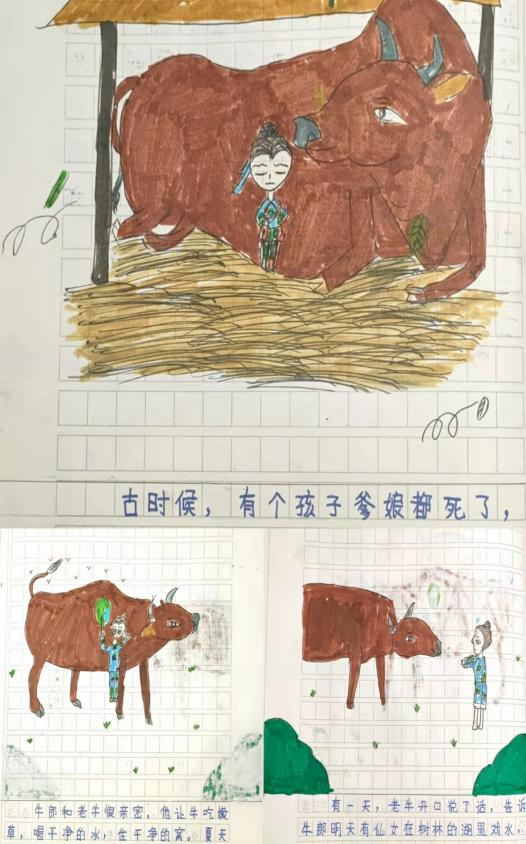 古时候，有个孩子爹娘都死了，
牛郎和老牛很亲密。他让牛吃嫩
草，喝干净的水，住干净的窝。夏天
有一天，老牛开口说了话，告诉
牛郎明天有仙女在树林的湖里戏水，